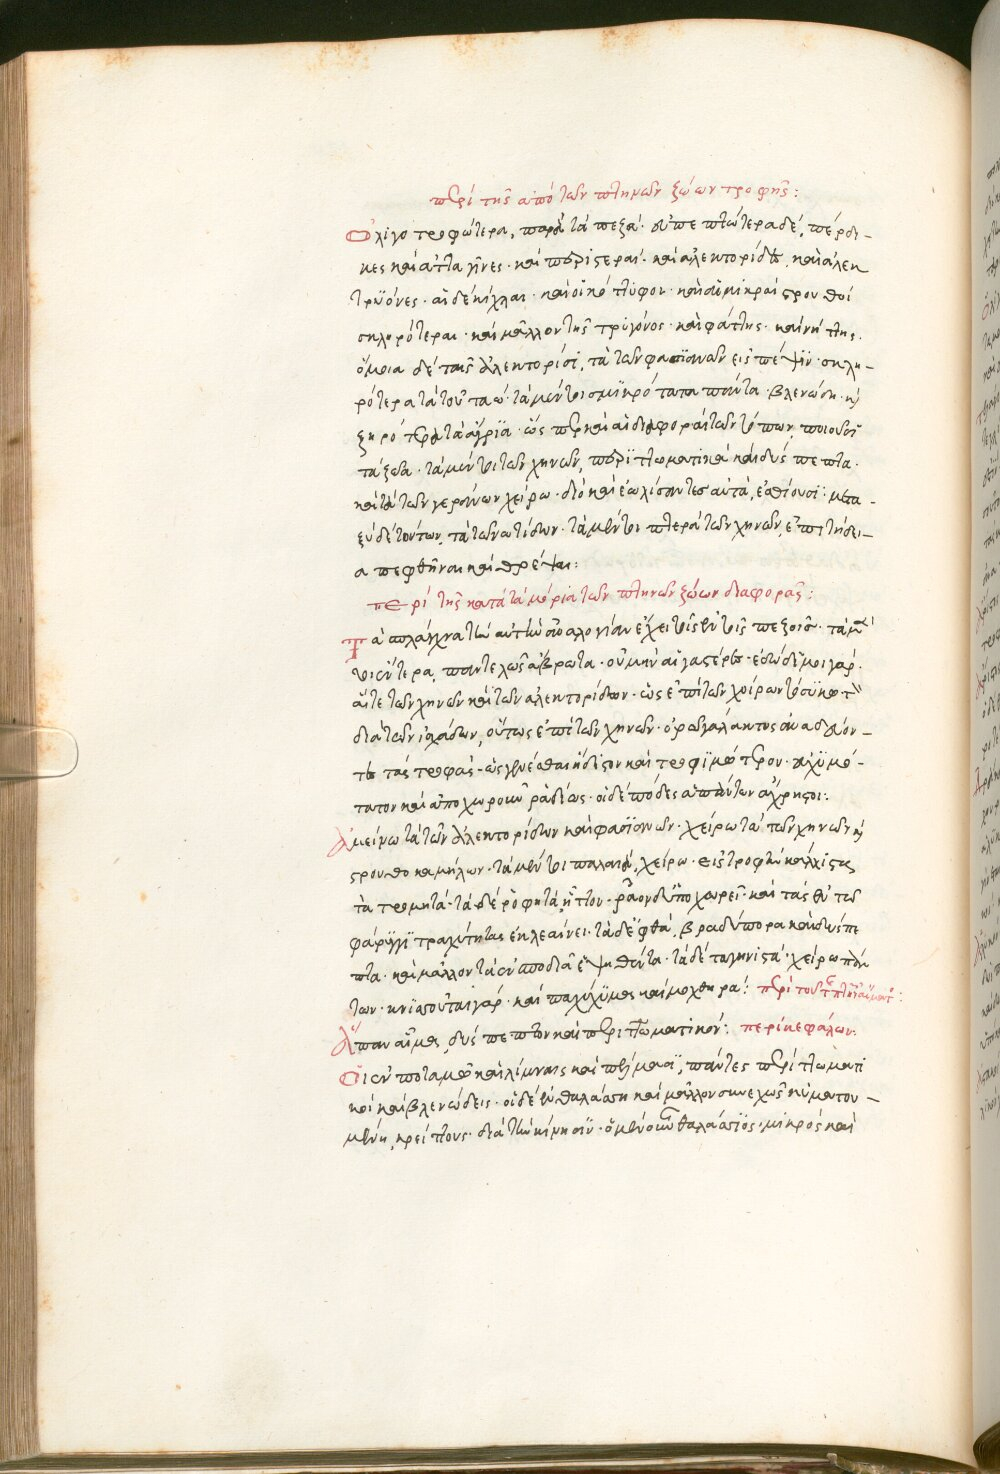 περὶ τῆς ἀπὸ τῶν πτηνῶν ζώων τροφῆς:
Ὀλιγοτροφώτερα, παρὰ τὰ πεζά· εὐπεπτώτερα δέ, πέρδι-
κες καὶ ἀτταγῆνες· καὶ περιστεραί· καὶ ἀλεκτορίδες, καὶ ἀλεκ
τρυόνες· αἱ δὲ κίχλαι· καὶ οἱ κότυφοι· καὶ αἱ μικραὶ στρουθοὶ
σκληρότεραι· καὶ μᾶλλον τῆς τρυγόνος· καὶ φάττης· καὶ νήττης.
ὅμοια δὲ ταῖς ἀλεκτορίσι, τὰ τῶν φασιανῶν εἰς πέψιν· σκλη-
ρότερα τὰ τοῦ ταώ· τὰ μέντοι σμικρότατα πάντα· βλενώδη· κỳ
ξηρότερα τὰ ἄγρια· ὥσπερ καὶ αἱ διαφοραὶ τῶν τόπων, ποιοῦσι
τὰ ζῶα· τὰ μέντοι τῶν χηνῶν, περιττωματικὰ καὶ δύσπεπτα·
καὶ τὰ τῶν γεράνων χείρω· διὸ καὶ ἑωλίσαντες αὐτά, ἐσθίουσι· μετα-
ξὺ δὲ τούτων, τὰ τῶν ὠτίδων· τὰ μέντοι πτερὰ τῶν χηνῶν, ἐπιτήδει-
α πεφθῆναι καὶ θρέψαι:
περὶ τῆς κατὰ τὰ μόρια τῶν πτηνῶν ζώων διαφορᾶς:
Τὰ σπλάγχνα τὴν αὐτὴν ἀναλογίαν ἔχει τοῖς ἐν τοῖς πεζοῖς· τὰ μέν
τοι ἔντερα, παντελῶς ἄβρωτα· οὐ μὴν αἱ γαστέρες· ἐδώδιμοι γάρ.
αἵ τε τῶν χηνῶν καὶ τῶν ἀλεκτορίδων· ὡς ἐπὶ τῶν χοίρων τὸ συκωτὸν
διὰ τῶν ἰσχάδων, οὕτως ἐπὶ τῶν χηνῶν· ὀρῷ γάλακτος ἀναδεύον-
τες τὰς τροφάς· ὡς γενέσθαι ἥδιστον καὶ τροφιμώτερον· εὐχυμό-
τατον καὶ ἀποχωροῦν ῥαδίως· οἱ δὲ πόδες ἁπάντων ἄχρηστοι:
Ἀμείνω τὰ τῶν ἀλεκτορίδων καὶ φασιανῶν· χείρω τὰ τῶν χηνῶν κỳ
στρουθοκαμήλων· τὰ μέντοι παλαιά, χείρω· εἰς τροφὴν κάλλιστα
τὰ τρομητά· τὰ δὲ ῥοφητά, ἧττον· ῥᾶον δ' ὑποχωρεῖ· καὶ τὰς ἐν τῷ
φάρυγγι τραχύτητας ἐκλεαίνει· τὰ δ' ἑφθά, βραδύπορα καὶ δύσπε
πτα· καὶ μᾶλλον τὰ ἐν σποδιᾷ ἑψηθέντα· τὰ δὲ ταγηνιστά· χείρω πάν
των· κνισοῦται γάρ· καὶ παχύχυμα καὶ μοχθηρά: περὶ τοῦ τῶν πτηνῶν αἵματος:
Ἅπαν αἷμα, δύσπεπτον καὶ περιττωματικόν: περὶ κεφάλων:
Οἱ ἐν ποταμοῖς καὶ λίμναις καὶ τέλμασι, πάντες περιττωματι
κοὶ καὶ βλενώδεις· οἱ δὲ ἐν θαλάσσῃ καὶ μᾶλλον συνεχῶς κυματου-
μένῃ, κρείττους· διὰ τὴν κίνησιν· ὁ μὲν οὖν θαλάσσιος· μικρὸς καὶ